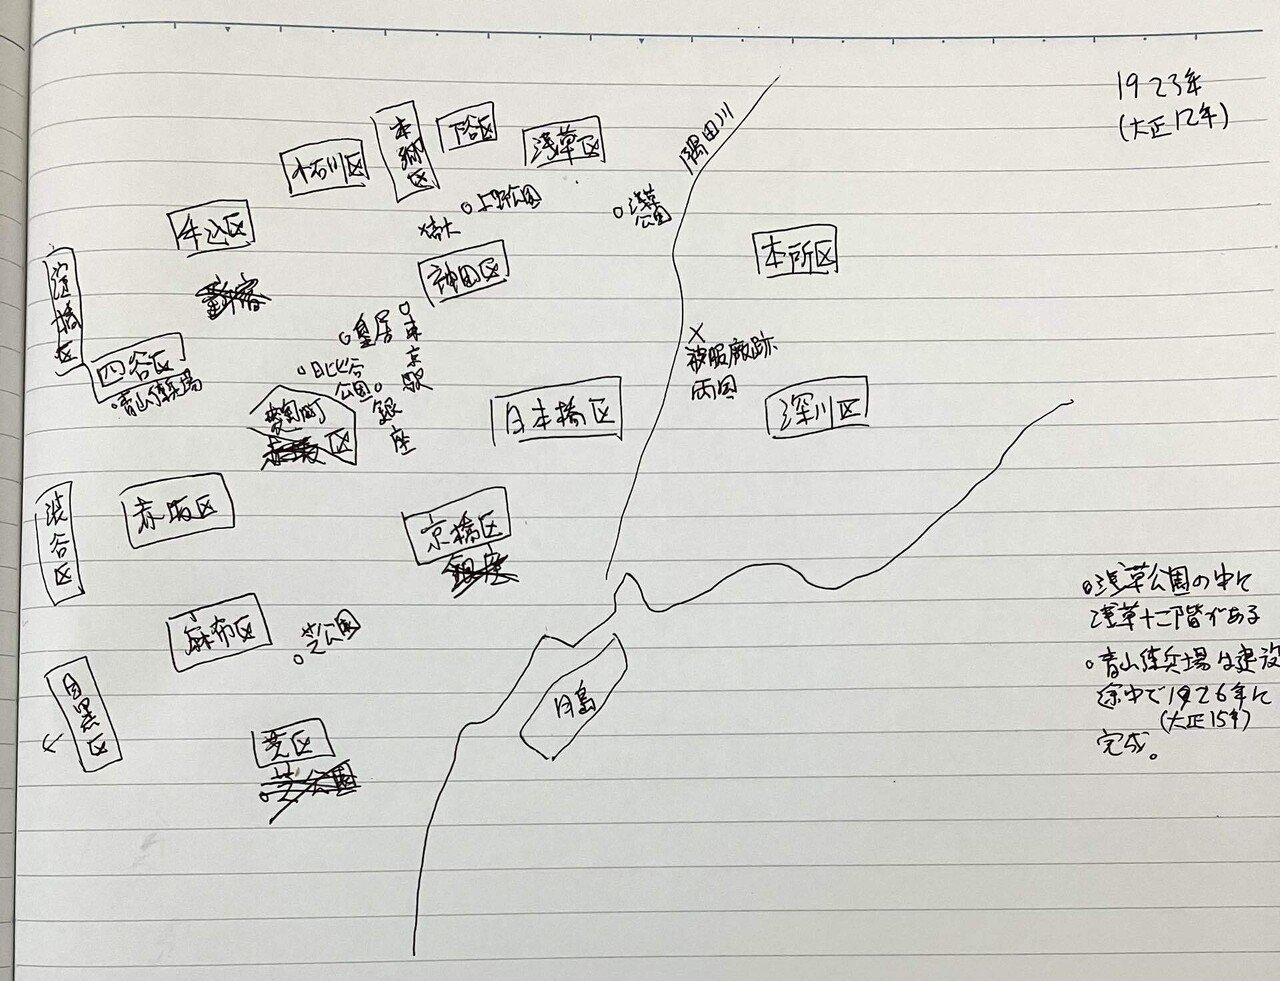 1923年
(大正12年)
隅田川
本郷区
下谷区
浅草区
小石川区
上野公園
浅草
公園
牛込区
帝大
神田区
本所区
淀橋区
新宿
皇居
東京駅
被服廠跡
両国
四谷区
青山練兵場
日比谷
公園
銀座
麹町
区
日本橋区
深川区
渋谷区
赤坂区
京橋区
銀座
麻布区
芝公園
目黒区
月島
芝区
芝公園
浅草公園の中に
浅草十二階がある
青山練兵場は建設
途中で1926年に
(大正15年)
完成。